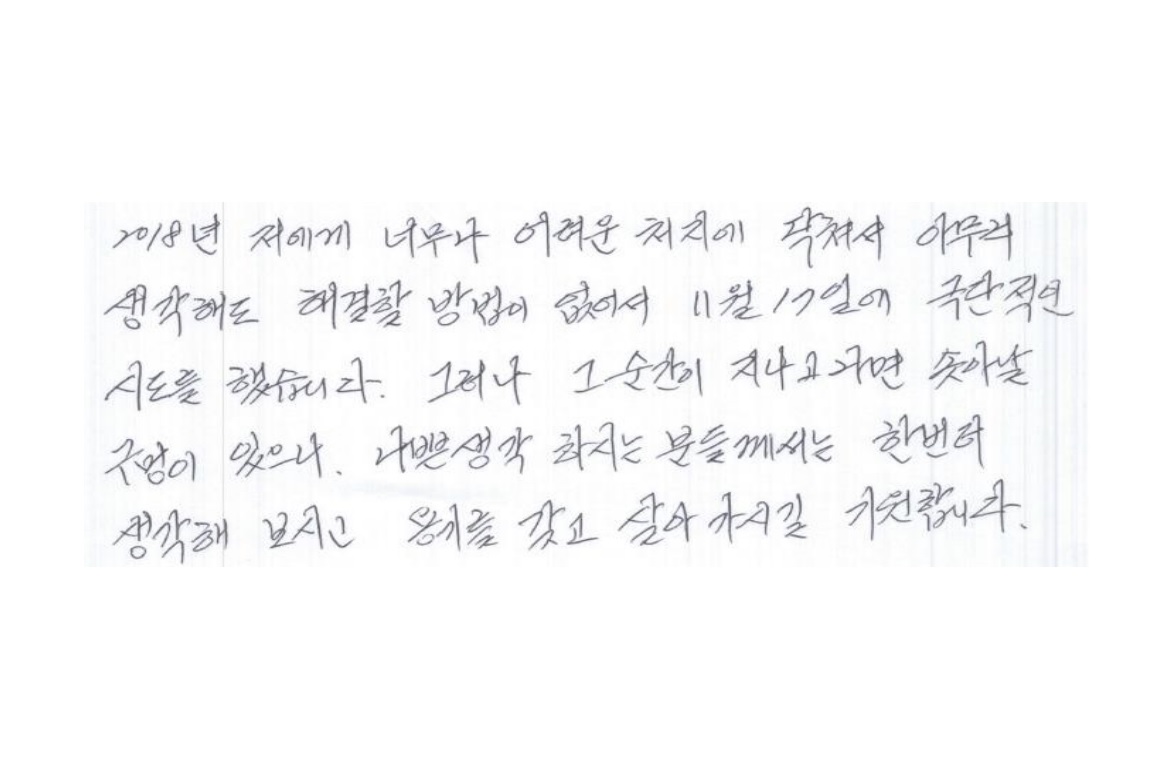 2018년 저에게 너무나 어려운 처지에 닥쳐서 아무리
생각해도 해결할 방법이 없어서 11월 17일에 극단적인
시도를 했습니다. 그러나 그 순간이 지나고 나면 솟아날
구멍이 있으나. 나쁜생각 하시는 분들께서는 한번더
생각해 보시고 용기를 갖고 살아 가시길 기원합니다.